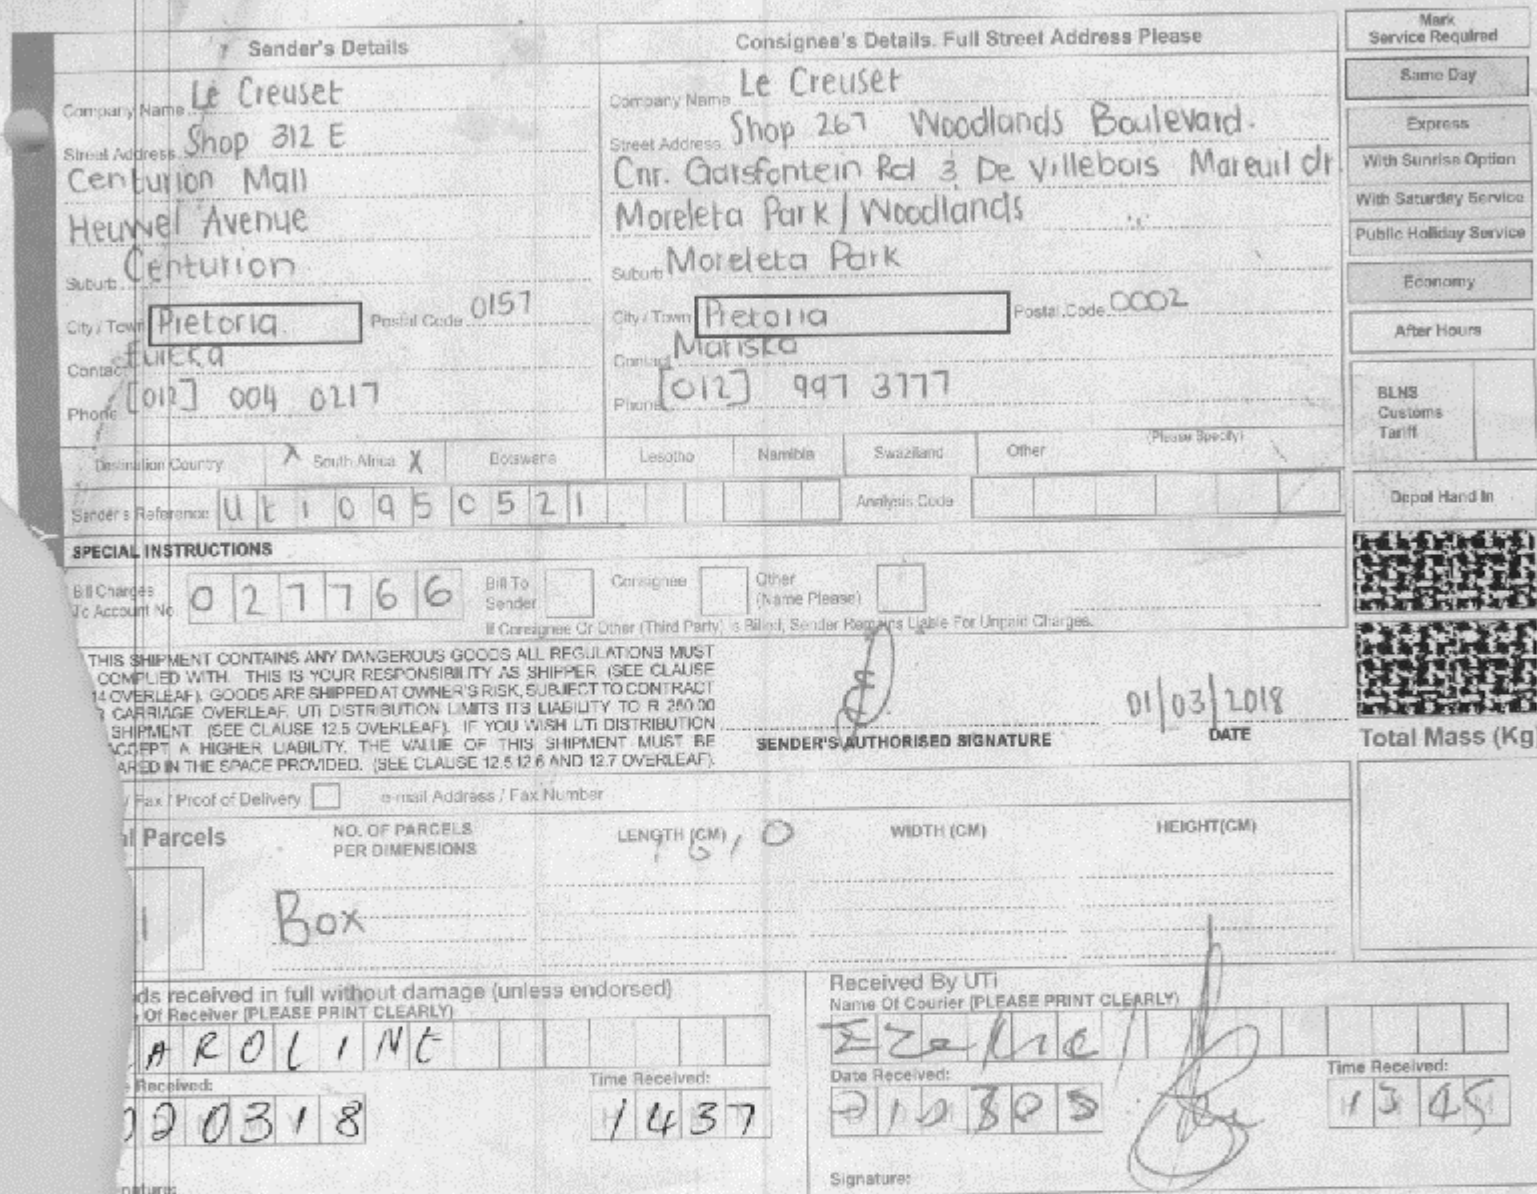 Sender's Details
Consignee's Details. Full Street Address Please
Mark
Service Required
Company Name Le Creuset
Street Address Shop 312 E
Centurion Mall
Heuwel Avenue
Suburb Centurion
City / Town Pretoria Postal Code 0157
Contact Eureka
Phone [012] 004 0217
Company Name Le Creuset
Street Address Shop 267 Woodlands Boulevard.
Cnr. Garsfontein Rd & De Villebois Mareuil dr.
Moreleta Park / Woodlands
Suburb Moreleta Park
City / Town Pretoria Postal Code 0002
Contact Mariska
Phone [012] 997 3777
Same Day
Express
With Sunrise Option
With Saturday Service
Public Holiday Service
Economy
After Hours
BLNS
Customs
Tariff
Depot Hand In
Destination Country South Africa X Botswana Lesotho Namibia Swaziland Other (Please Specify)
Sender's Reference Ut10950521 Analysis Code
SPECIAL INSTRUCTIONS
Bill Charges
To Account No 027766
Bill To
Sender
Consignee
Other
(Name Please)
If Consignee Or Other (Third Party) is Billed, Sender Remains Liable For Unpaid Charges.
THIS SHIPMENT CONTAINS ANY DANGEROUS GOODS ALL REGULATIONS MUST
COMPLIED WITH. THIS IS YOUR RESPONSIBILITY AS SHIPPER (SEE CLAUSE
14 OVERLEAF). GOODS ARE SHIPPED AT OWNER'S RISK, SUBJECT TO CONTRACT
CARRIAGE OVERLEAF. UTI DISTRIBUTION LIMITS ITS LIABILITY TO R 250.00
SHIPMENT (SEE CLAUSE 12.5 OVERLEAF). IF YOU WISH UTI DISTRIBUTION
ACCEPT A HIGHER LIABILITY, THE VALUE OF THIS SHIPMENT MUST BE
ARED IN THE SPACE PROVIDED. (SEE CLAUSE 12.5 12.6 AND 12.7 OVERLEAF).
SENDER'S AUTHORISED SIGNATURE
01/03/2018
DATE
Total Mass (Kg
/ Fax / Proof of Delivery e-mail Address / Fax Number
Parcels
NO. OF PARCELS
PER DIMENSIONS
LENGTH (CM)
WIDTH (CM)
HEIGHT(CM)
1
Box
ds received in full without damage (unless endorsed)
Of Receiver (PLEASE PRINT CLEARLY)
AROLINE
Received:
020318
Time Received:
1437
Received By UTi
Name Of Courier (PLEASE PRINT CLEARLY)
Date Received:
Time Received:
1345
Signature: